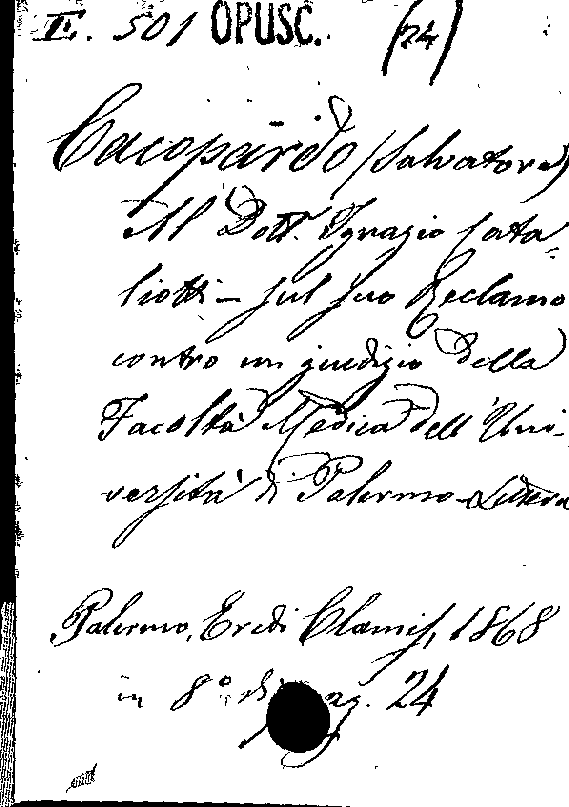 II. 501 OPUSC. (24)
Cacopardo (Salvatore)
Al Dott. Ignazio Cata-
liotti – sul suo Reclamo
contro un giudizio della
Facoltà Medica dell'Uni-
versità di Palermo – Lettera
Palermo, Eredi Clamis, 1868
in 8° di pag. 24